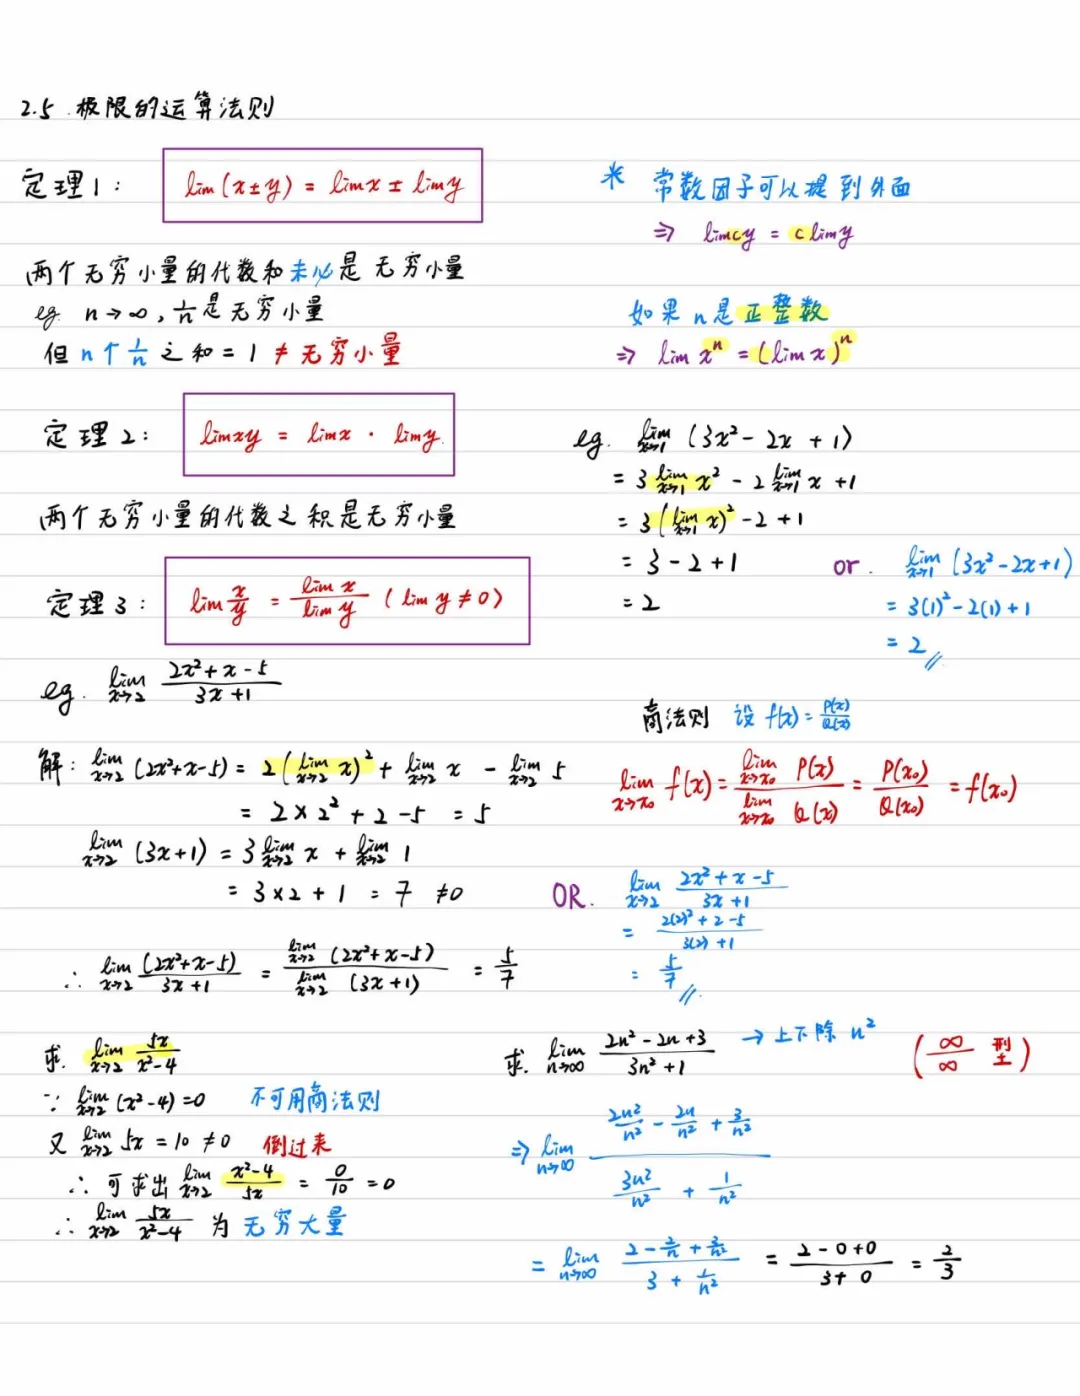 2.5 极限的运算法则
定理1: lim(x±y) = limx ± limy
两个无穷小量的代数和未必是无穷小量
eg. n→∞, 1/n是无穷小量
但 n个 1/n 之和 = 1 ≠ 无穷小量
定理2: limxy = limx · limy.
两个无穷小量的代数之积是无穷小量
定理3: lim x/y = lim x / lim y (lim y ≠ 0)
eg. lim x→2 (2x²+x-5)/(3x+1)
解: lim x→2 (2x²+x-5) = 2(lim x→2 x)² + lim x→2 x - lim x→2 5
= 2×2² + 2 - 5 = 5
lim x→2 (3x+1) = 3 lim x→2 x + lim x→2 1
= 3×2 + 1 = 7 ≠0
∴ lim x→2 (2x²+x-5)/(3x+1) = lim x→2 (2x²+x-5) / lim x→2 (3x+1) = 5/7
求. lim x→2 5x/(x²-4)
∵ lim x→2 (x²-4)=0 不可用商法则
又 lim x→2 5x = 10 ≠0 倒过来
∴ 可求出 lim x→2 (x²-4)/5x = 0/10 = 0
∴ lim x→2 5x/(x²-4) 为 无穷大量
* 常数因子可以提到外面
⇒ limcy = c limy
如果 n是正整数
⇒ lim xⁿ = (lim x)ⁿ
eg. lim x→1 (3x²-2x+1)
= 3 lim x→1 x² - 2 lim x→1 x +1
= 3(lim x→1 x)² - 2 + 1
= 3 - 2 + 1
= 2
or. lim x→1 (3x²-2x+1)
= 3(1)² - 2(1) + 1
= 2
商法则 设 f(x) = P(x)/Q(x)
lim x→x₀ f(x) = lim x→x₀ P(x) / lim x→x₀ Q(x) = P(x₀)/Q(x₀) = f(x₀)
OR. lim x→2 (2x²+x-5)/(3x+1)
= (2(2)²+2-5)/(3(2)+1)
= 5/7
求. lim n→∞ (2n²-2n+3)/(3n²+1) → 上下除 n² (∞/∞ 型)
⇒ lim n→∞ (2n²/n² - 2n/n² + 3/n²)/(3n²/n² + 1/n²)
= lim n→∞ (2 - 2/n + 3/n²)/(3 + 1/n²) = (2-0+0)/(3+0) = 2/3